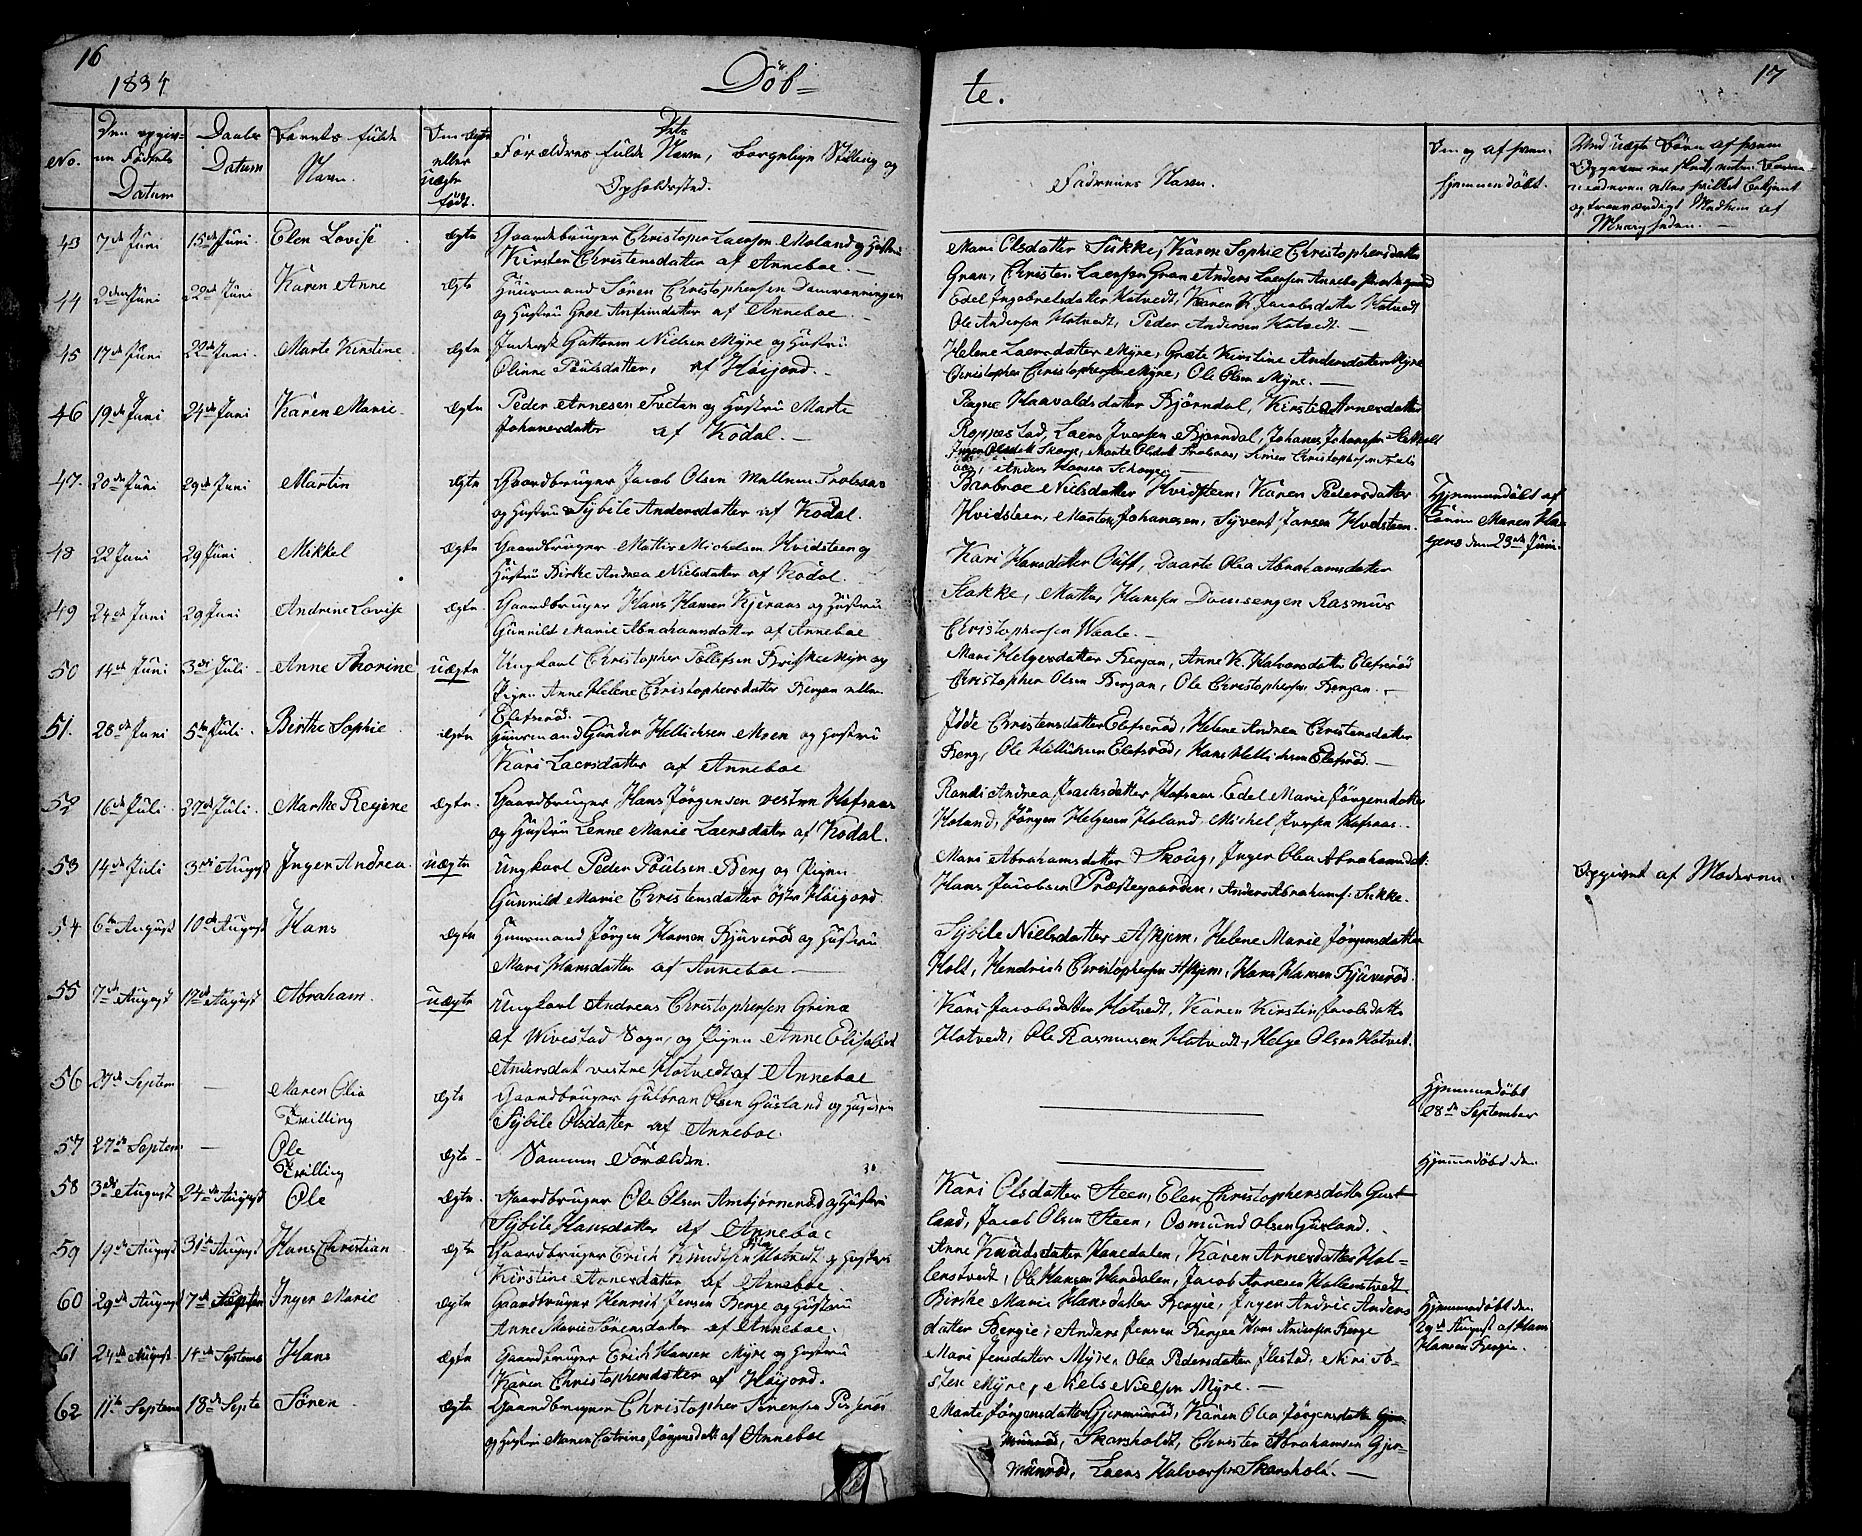 16
1834
Döb-
te.
17
No.
Den opgiv-
ne Fødsels
Datum
Daabs
Datum
Barnets fulde
Navn.
Om ægte
eller
uægte
født.
Forældres fulde Navn, borgelige Stilling og
Opholdssted.
Faderenes Navn.
Om og af hvem
hjemmedøbt.
43 7de Juni 15de Juni. Elen Lovise ægte Gaardbruger Christopher Laersen Moland og Hustru
Kirsten Christensdatter af Anneboe.
Mari Olsdatter Sukke, Karen Sophie Christophersdatter
Gran, Christen Laersen Gran Anders Laersen
44 2den Juni 22de Juni Karen Anne ægte Huusmand Sören Christophersen
og Hustru Groe datter af Anneboe.
Edel Ingebrethsdatter Hotvedt, Karen K. Jacobsdatter Hotvedt
Ole Andersen Hotvedt, Peder Andersen Hotvedt.
45 17de Juni 22de Juni. Marte Kirstine ægte Guttorm Nielsen Myre og Hustru
Olinne Poulsdatter, af Höijord.
Helene Laersdatter Myre, Grete Kirstine Andersdatter Myre
Christopher Christophersen Myre, Ole Olsen Myre.
46 19de Juni 24de Juni Karen Marie. ægte Peder Annesen Tvetan og Hustru Marte
Johanesdatter af Kodal.
Ragne Haavaldsdatter Bjørndal, Kirsti Annesdatter
Roppestad, Laers Iversen Bjørndal, Johanes Johannesen
47. 20de Juni 29de Juni Martin ægte Gaardbruger Jacob Olsen Mellem Trolsaas
og Hustru Sybile Andersdatter af Kodal.
Anders Hansen
48 22 Juni 29 Juni. Mikkel ægte Gaardbruger Mattis Michelsen Hvidsteen og
Hustru Birthe Andrea Nielsdatter af Kodal.
Barbroe Nielsdatter Hvidsteen, Karen Pedersdatter
Hvidsteen, Morten Johanesen, Syvert Jansen Hvidsteen.
Hjemmedøbt af
Maren Ha-
gens den 23de Juni.
49 24de Juni 29 Juni Andrine Lovise ægte. Gaardbruger Hans Hansen Kjeraas og Hustru
Gunnild Marie Abrahamsdatter af Anneboe
Kari Hansdatter Ouff, Daarte Olea Abrahamsdatter
Stokke, Mathis Hansen Damsengen Rasmus
Christophersen Waale.
50 14de Juni 3die Juli Anne Thorine uægte Ungkarl Christopher Tollefsen og
Pigen Anne Helene Christophersdatter Bergan eller
Elefsrød.
Mari Helgesdatter Bergan, Anne K. Halvorsdatter Elefsrød
Christopher Olsen Bergan, Ole Christophersen Bergan.
51. 28de Juni 5te Juli. Birthe Sophie. ægte Huusmand Gunder Hellichsen Moen og Hustru
Kari Laersdatter af Anneboe
Idde Christensdatter Elefsrød, Helene Andrea Christensdatter
Berg, Ole Hellichsen Elefsrød, Hans Hellichsen Elefsrød.
52 16de Juli. 27de Juli. Marthe Regine ægte. Gaardbruger Hans Jørgensen vestre Hafsaas
og Hustru Lenne Marie Laersdatter af Kodal.
Randi Andrea Isachsdatter Hafsaas Edel Marie Jørgensdatter
Holand, Jørgen Helgesen Holand, Michel Iversen Hafsaas.
53 14de Juli 3die August Inger Andrea. uægte Ungkarl Peder Poulsen Berg og Pigen
Gunnild Marie Christensdatter östre Höijord.
Mari Abrahamsdatter Skoug, Inger Olea Abrahamsdat:
Hans Jacobsen Præstegaarden, Anders Abrahams: Sukke.
Opgivet af Moderen.
54 6te August 10de August Hans ægte Huusmand Jørgen Hansen Kjuverød og Hustru
Mari Hansdatter af Anneboe
Sybile Nielsdatter Askjem, Helene Marie Jørgensdatter
Holt, Hendrich Christophersen Askjem, Hans Hansen Kjuverød.
55 7de August 17de August Abraham. uægte Ungkarl Andreas Christophersen Grinæ
af Wivestad Sogn, og Pigen Anne Elisabet
Andersdat vestre Hotvedt af Anneboe
Kari Jacobsdatter Hotvedt, Karen Kirstin Jacobsdatter
Hotvedt, Ole Rasmusen Hotvedt, Helge Olsen Hotvet.
56 27de Septem — Maren Olia
Tvilling ægte Gaardbruger Gulbran Olsen Gusland og Hustru
Sybile Olsdatter af Anneboe.
Hjemmedöbt
28de September
57 27de Septem — Ole
Tvilling ægte Samme Forældre.
Hjemmedöbt do.
58 3die August 24de August Ole ægte. Gaardbruger Ole Olsen Ambjörnerød og Hustru
Sybile Hansdatter af Anneboe
Kari Olsdatter Steen, Elen Christophersdatter Gus-
land, Jacob Olsen Steen, Osmund Olsen Gusland.
59 19de August 31te August Hans Christian ægte Gaardbruger Erich Knudtsen Hotvedt og Hustru
Kirstine Annesdatter af Anneboe
Anne Knudsdatter Hanedalen, Karen Annesdatter Hol-
lenstvedt, Ole Hansen Hanedalen, Jacob Annesen Hollenstvedt
60 29de August 7de Septem Inger Marie ægte Gaardbruger Henrich Jensen Berge og Hustru
Anne Marie Sörensdatter af Anneboe.
Birthe Marie Hansdatter Bergie, Inger Andrie Anders
datter Bergie, Anders Jensen Bergee Hans Andersen Berge
Hjemmedöbt den
29de August af Hans
Hansen Bergie.
61 24de August 14de Septem Hans ægte Gaardbruger Erich Hansen Myre og Hustru
Karen Christophersdatter af Höijord.
Mari Jensdatter Myre, Olea Pedersdatter Ilestad,
Myre, Niels Nielsen Myre.
62 11te Septem 18de Septe Sören ægte Gaardbruger Christopher Sörensen
og Hustru Maren Catrine Jørgensdatt af Anneboe
Marte Jørgensdatter Gjermundrød, Karen Olea Jørgensdatter
Skarsholdt, Christen Abrahamsen Gjer-
munrød, Laers Halvorsen Skarsholt.